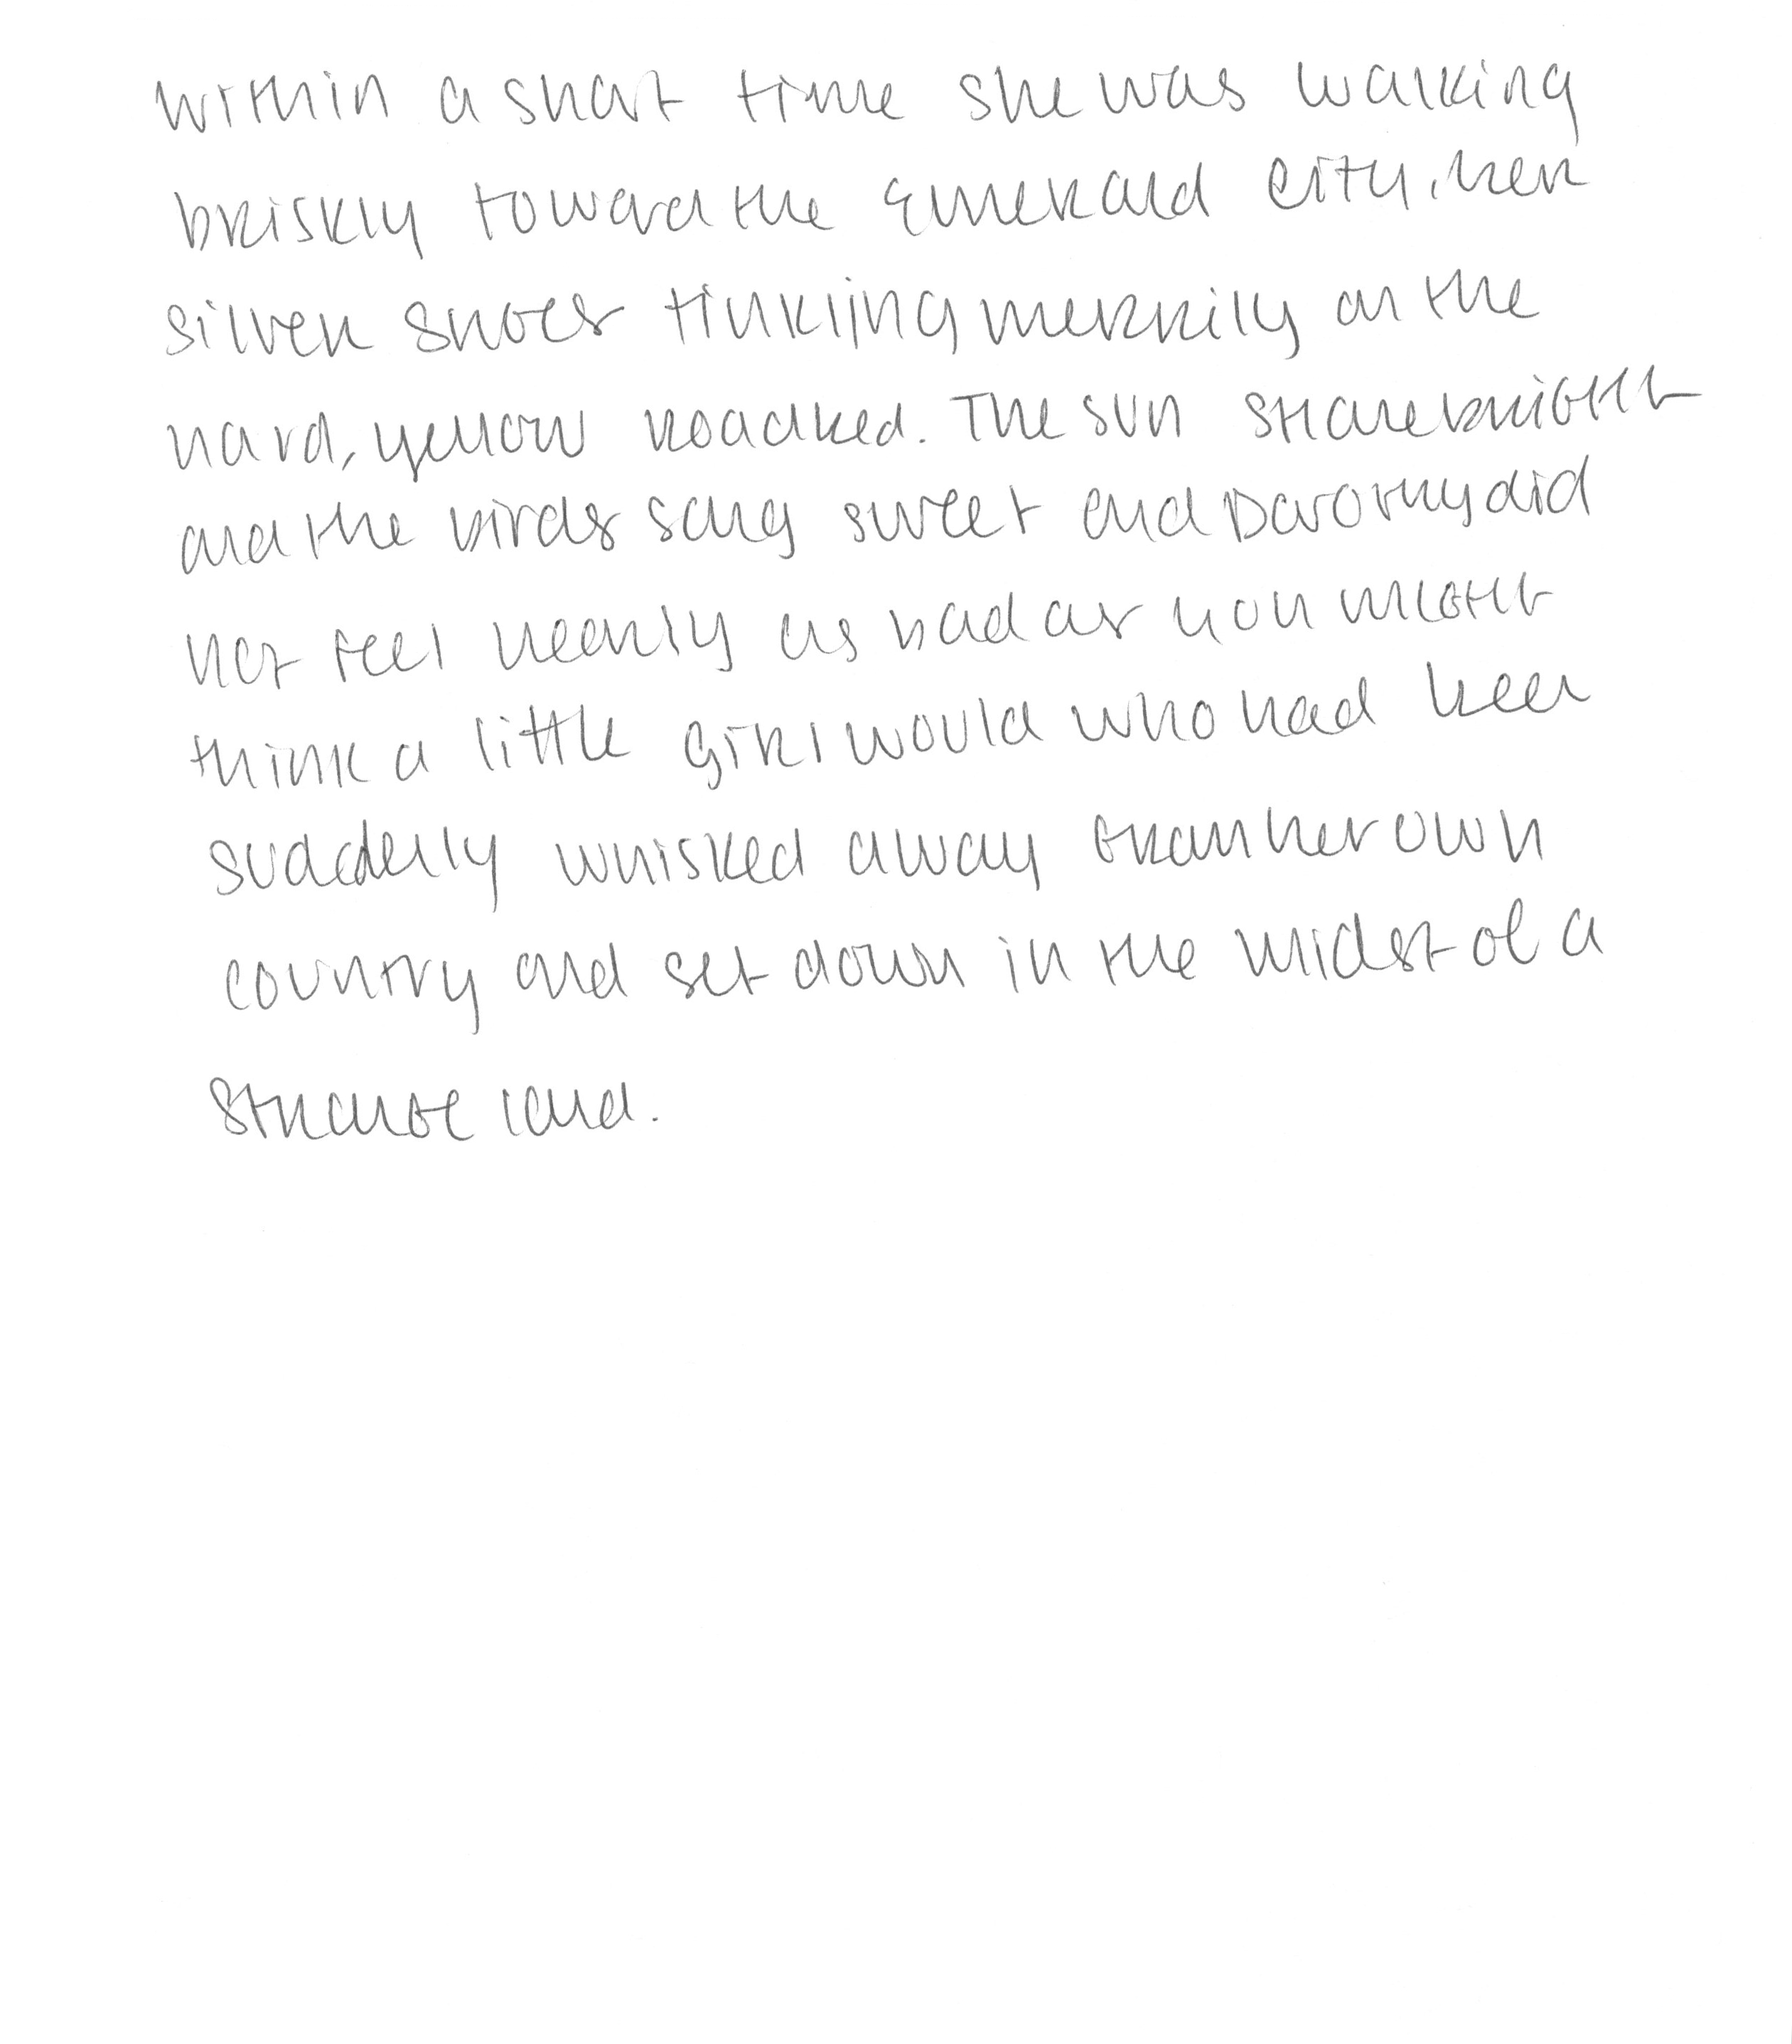 Within a short time she was walking
briskly toward the Emerald City, her
silver shoes tinkling merrily on the
hard, yellow roadbed. The sun shone bright
and the birds sang sweet and Dorothy did
not feel nearly as bad as you might
think a little girl would who had been
suddenly whisked away from her own
country and set down in the midst of a
strange land.